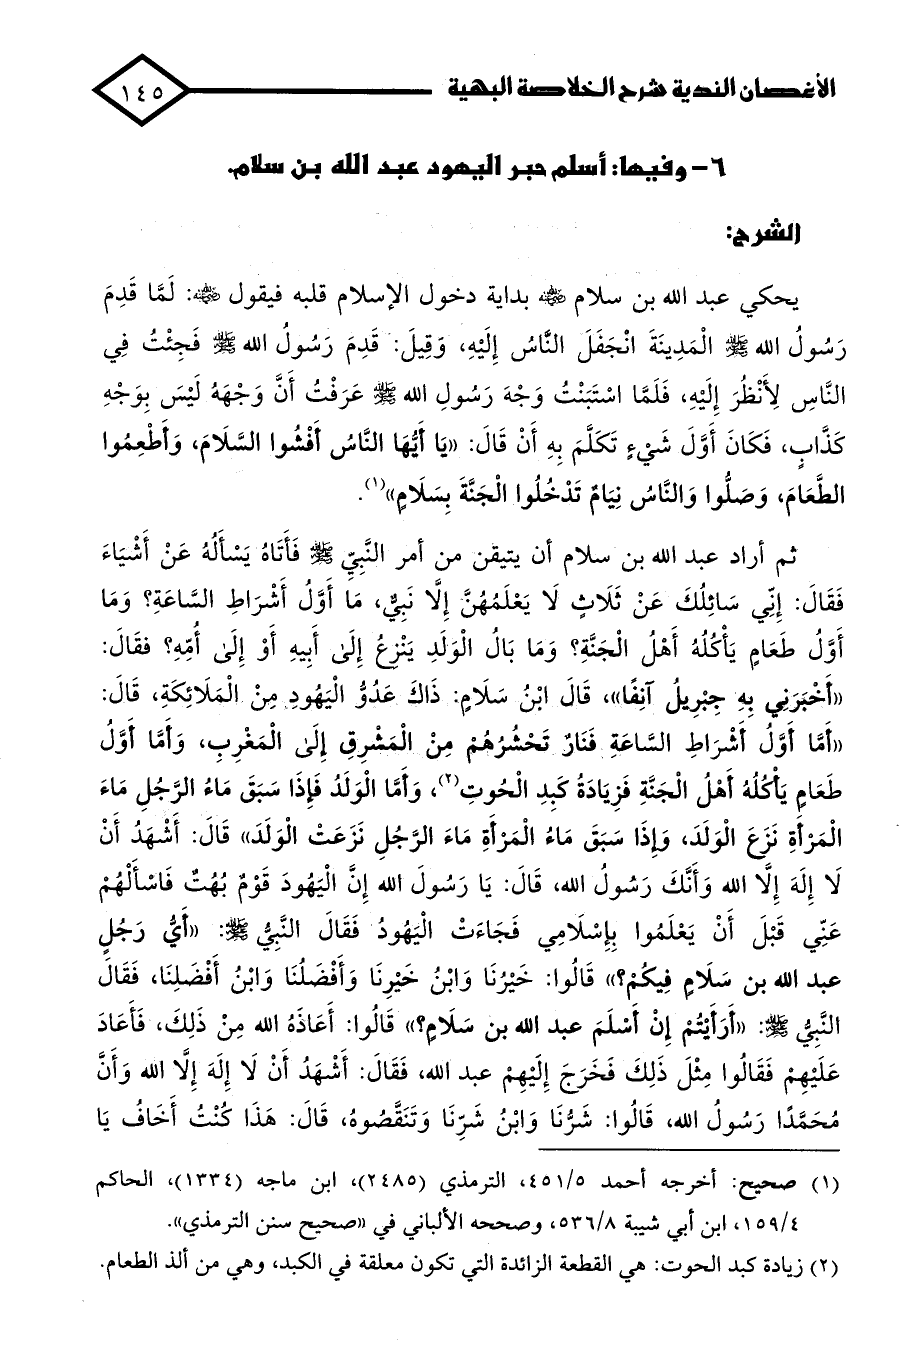 الأغصان الندية شرح الخلاصة البهية ١٤٥
٦- وفيها: أسلم حبر اليهود عبد الله بن سلام.
الشرح:
يحكي عبد الله بن سلام ﵁ بداية دخول الإسلام قلبه فيقول ﵁: لَمَّا قَدِمَ
رَسُولُ الله ﷺ الْمَدِينَةَ انْجَفَلَ النَّاسُ إِلَيْهِ، وَقِيلَ: قَدِمَ رَسُولُ الله ﷺ فَجِئْتُ فِي
النَّاسِ لِأَنْظُرَ إِلَيْهِ، فَلَمَّا اسْتَبَنْتُ وَجْهَ رَسُولِ الله ﷺ عَرَفْتُ أَنَّ وَجْهَهُ لَيْسَ بِوَجْهِ
كَذَّابٍ، فَكَانَ أَوَّلَ شَيْءٍ تَكَلَّمَ بِهِ أَنْ قَالَ: «يَا أَيُّهَا النَّاسُ أَفْشُوا السَّلَامَ، وَأَطْعِمُوا
الطَّعَامَ، وَصَلُّوا وَالنَّاسُ نِيَامٌ تَدْخُلُوا الْجَنَّةَ بِسَلَامٍ»(١).
ثم أراد عبد الله بن سلام أن يتيقن من أمر النَّبِيِّ ﷺ فَأَتَاهُ يَسْأَلُهُ عَنْ أَشْيَاءَ
فَقَالَ: إِنِّي سَائِلُكَ عَنْ ثَلَاثٍ لَا يَعْلَمُهُنَّ إِلَّا نَبِيٌّ، مَا أَوَّلُ أَشْرَاطِ السَّاعَةِ؟ وَمَا
أَوَّلُ طَعَامٍ يَأْكُلُهُ أَهْلُ الْجَنَّةِ؟ وَمَا بَالُ الْوَلَدِ يَنْزِعُ إِلَى أَبِيهِ أَوْ إِلَى أُمِّهِ؟ فقَالَ:
«أَخْبَرَنِي بِهِ جِبْرِيلُ آنِفًا»، قَالَ ابْنُ سَلَامٍ: ذَاكَ عَدُوُّ الْيَهُودِ مِنْ الْمَلَائِكَةِ، قَالَ:
«أَمَّا أَوَّلُ أَشْرَاطِ السَّاعَةِ فَنَارٌ تَحْشُرُهُمْ مِنْ الْمَشْرِقِ إِلَى الْمَغْرِبِ، وَأَمَّا أَوَّلُ
طَعَامٍ يَأْكُلُهُ أَهْلُ الْجَنَّةِ فَزِيَادَةُ كَبِدِ الْحُوتِ(٢)، وَأَمَّا الْوَلَدُ فَإِذَا سَبَقَ مَاءُ الرَّجُلِ مَاءَ
الْمَرْأَةِ نَزَعَ الْوَلَدَ، وَإِذَا سَبَقَ مَاءُ الْمَرْأَةِ مَاءَ الرَّجُلِ نَزَعَتْ الْوَلَدَ» قَالَ: أَشْهَدُ أَنْ
لَا إِلَهَ إِلَّا الله وَأَنَّكَ رَسُولُ الله، قَالَ: يَا رَسُولَ الله إِنَّ الْيَهُودَ قَوْمٌ بُهُتٌ فَاسْأَلْهُمْ
عَنِّي قَبْلَ أَنْ يَعْلَمُوا بِإِسْلَامِي فَجَاءَتْ الْيَهُودُ فَقَالَ النَّبِيُّ ﷺ: «أَيُّ رَجُلٍ
عبد الله بن سَلَامٍ فِيكُمْ؟» قَالُوا: خَيْرُنَا وَابْنُ خَيْرِنَا وَأَفْضَلُنَا وَابْنُ أَفْضَلِنَا، فَقَالَ
النَّبِيُّ ﷺ: «أَرَأَيْتُمْ إِنْ أَسْلَمَ عبد الله بن سَلَامٍ؟» قَالُوا: أَعَاذَهُ الله مِنْ ذَلِكَ، فَأَعَادَ
عَلَيْهِمْ فَقَالُوا مِثْلَ ذَلِكَ فَخَرَجَ إِلَيْهِمْ عبد الله، فَقَالَ: أَشْهَدُ أَنْ لَا إِلَهَ إِلَّا الله وَأَنَّ
مُحَمَّدًا رَسُولُ الله، قَالُوا: شَرُّنَا وَابْنُ شَرِّنَا وَتَنَقَّصُوهُ، قَالَ: هَذَا كُنْتُ أَخَافُ يَا
(١) صحيح: أخرجه أحمد ٤٥١/٥، الترمذي (٢٤٨٥)، ابن ماجه (١٣٣٤)، الحاكم
١٥٩/٤، ابن أبي شيبة ٥٣٦/٨، وصححه الألباني في «صحيح سنن الترمذي».
(٢) زيادة كبد الحوت: هي القطعة الزائدة التي تكون معلقة في الكبد، وهي من ألذ الطعام.